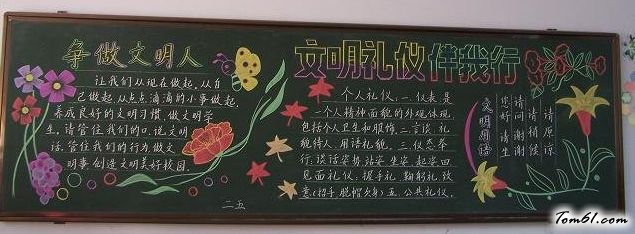 争做文明人
让我们从现在做起，从自
己做起，从点点滴滴的小事做起，
养成良好的文明习惯，做文明学
生，请管住我们的口，说文明
话，管住我们的行为，做文
明事，创造文明美好校园。
二五
文明礼仪伴我行
个人礼仪：一、仪表是
一个人精神面貌的外观体现，
包括个人卫生和服饰，二、言谈、礼
貌待人，用语礼貌，三、仪态举
行：谈话姿势，站姿，坐姿，起姿，四、
见面礼仪：握手礼，鞠躬礼，致
意（招手，脱帽，欠身）五、公共礼仪。
文明用语
请原谅
请稍候
请问 谢谢
您好 请坐
Tom61.com